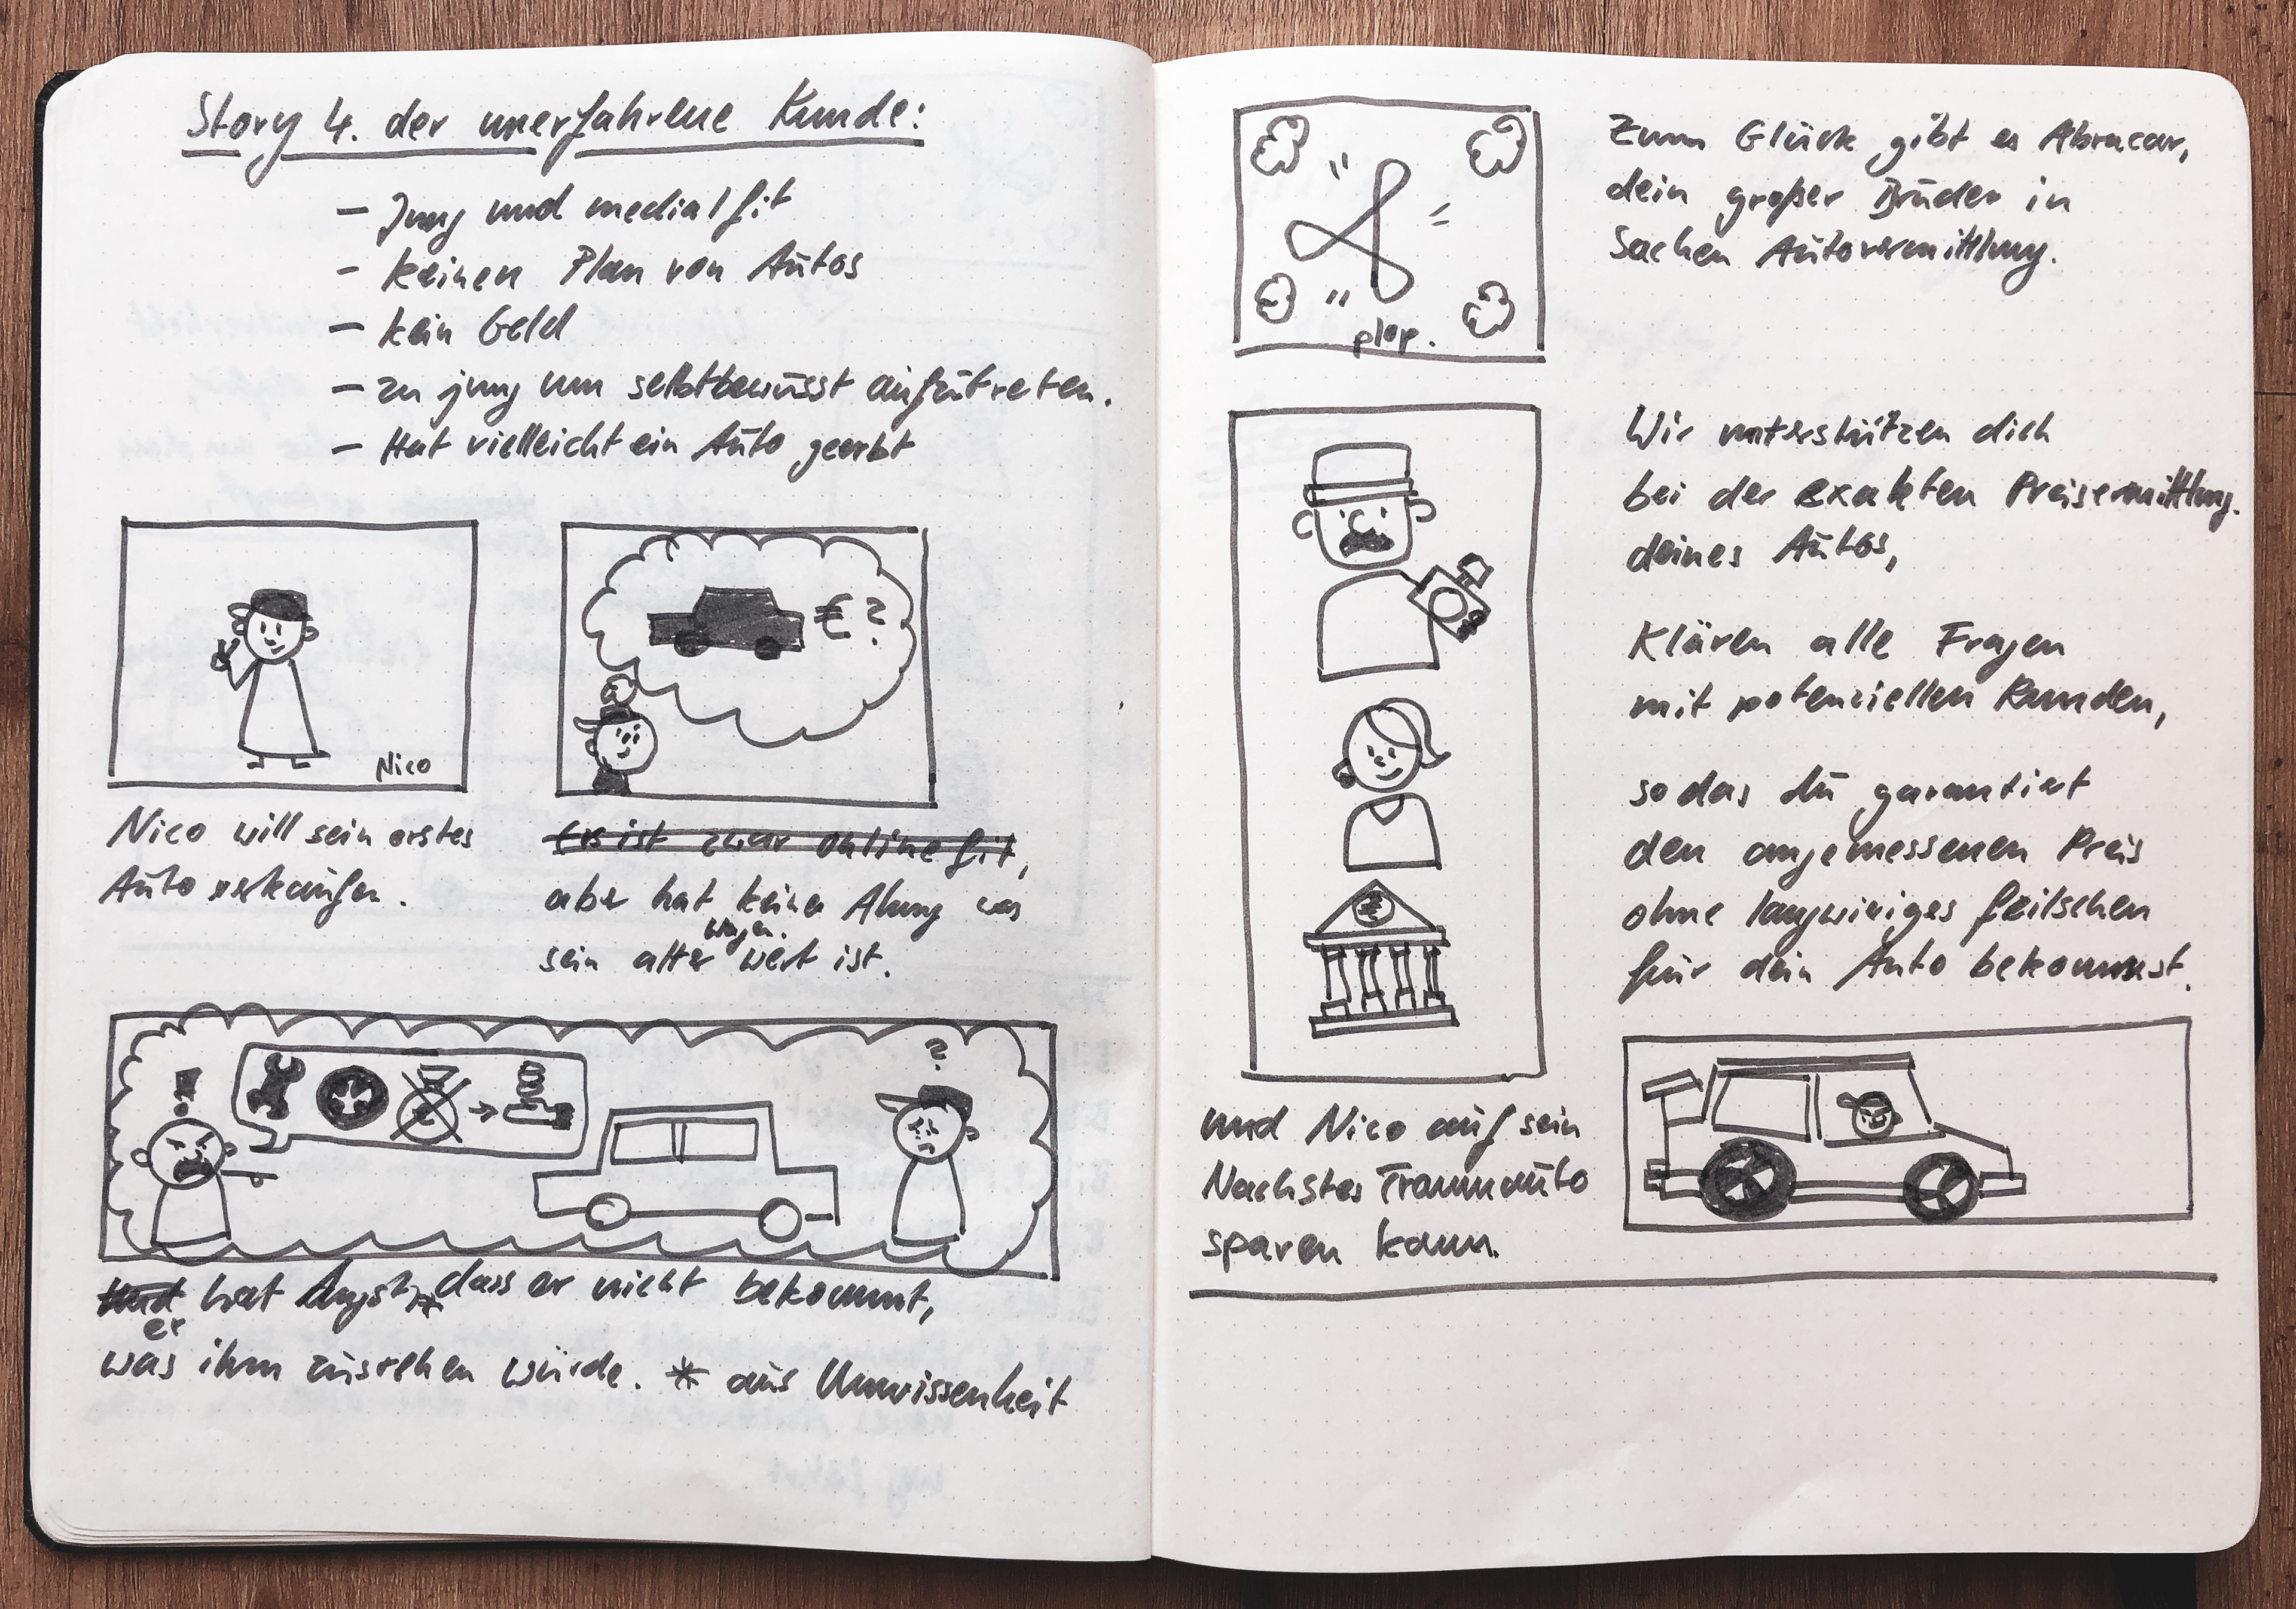 Story 4. der unerfahrene Kunde:
- Jung und medial fit
- keinen Plan von Autos
- kein Geld
- zu jung um selbtbewusst aufzutreten.
- Hat vielleicht ein Auto geerbt
€ ?
Nico
Nico will sein erstes
Auto verkaufen.
Er ist zwar online fit,
aber hat keine Ahnung was
sein alter Wagen. wert ist.
!
?
und er hat Angst * dass er nicht bekommt,
was ihm zustehen würde. * aus Unwissenheit
plop.
Zum Glück gibt es Abracar,
dein großer Bruder in
Sachen Autovermittlung.
Wir unterstützen dich
bei der exakten Preisermittlung.
deines Autos,
Klären alle Fragen
mit potenziellen Kunden,
so das du garantiert
den angemessenen Preis
ohne langwieriges feilschen
für dein Auto bekommst.
und Nico auf sein
Nächstes Traumauto
sparen kann.